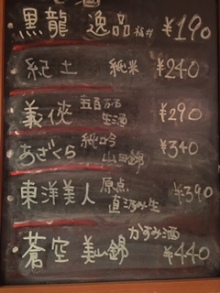 黒龍 逸品 福井 ¥190
紀土 純米 ¥240
義侠 五百万石 生酒 ¥290
あざくら 純吟 山田錦 ¥340
東洋美人 原点 直汲み生 ¥390
蒼空 美山錦 かすみ酒 ¥440